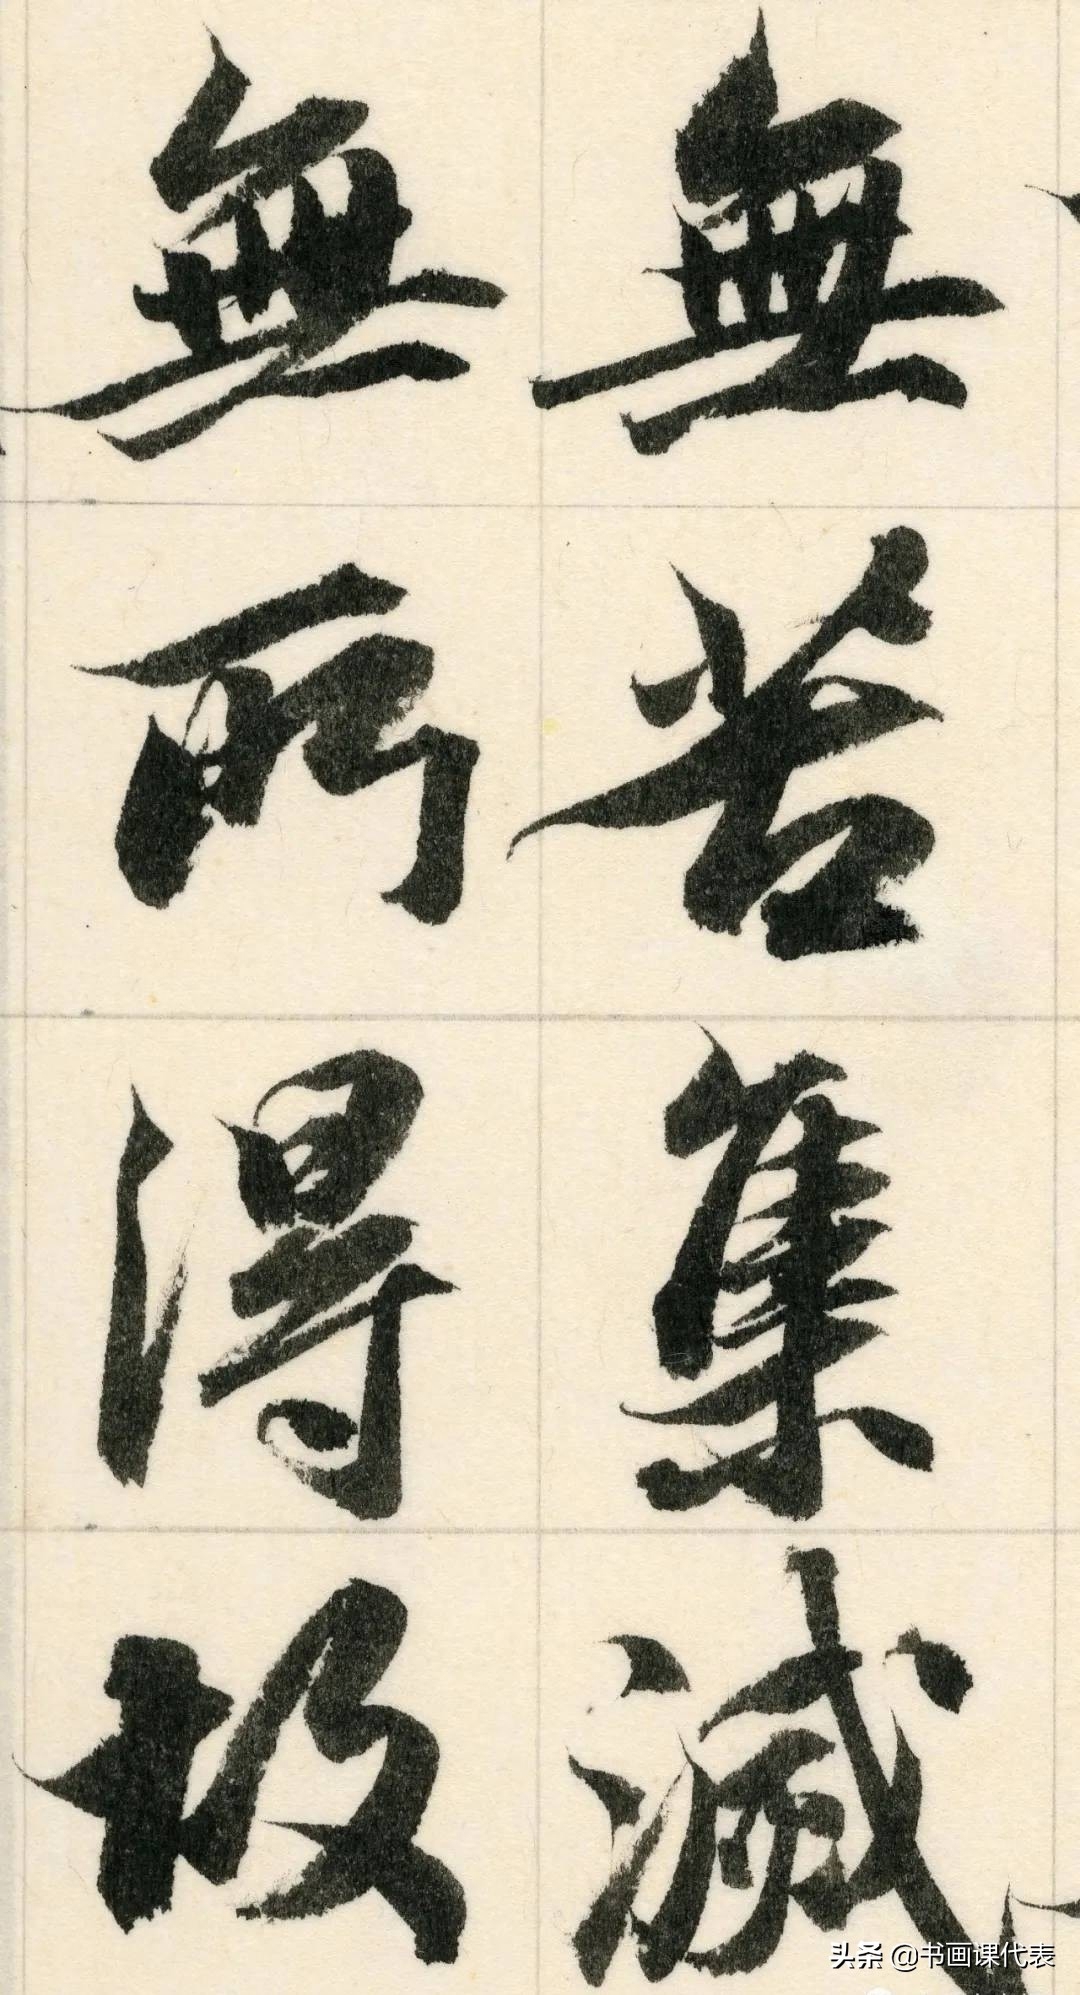 無苦集滅
無所得故
头条 @书画课代表